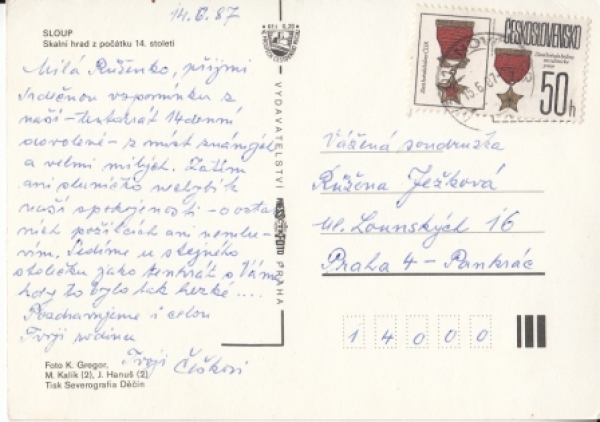 14.6.87
SLOUP
Skalní hrad z počátku 14. století
Milá Růženko, přijmi
srdečnou vzpomínku z
naší – tentokrát 14denní
dovolené – z míst známých
a velmi milých. Zatím
ani sluníčko nechybí k
naší spokojenosti – o ostat
ních požitcích ani nemlu-
vím. Sedíme u stejného
stolečku jako tenkrát s Vámi,
kdy to bylo tak hezké ....
Pozdravujeme i celou
Tvoji rodinu
Tvoji Češkovi
Foto K. Gregor,
M. Kalík (2), J. Hanuš (2)
Tisk Severografia Děčín
VYDAVATELSTVÍ
PRESSFOTO
PRAHA
ČESKOSLOVENSKO
50h
Vážená soudružka
Růžena Ježková
ul. Lounských 16
Praha 4 - Pankrác
14000